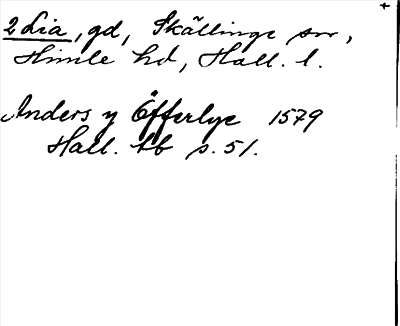 2 Lia, gd, Skällinge sn,
Himle hd, Hall. l.
Anders y Öfferlye 1579
Hall. tb s. 51.